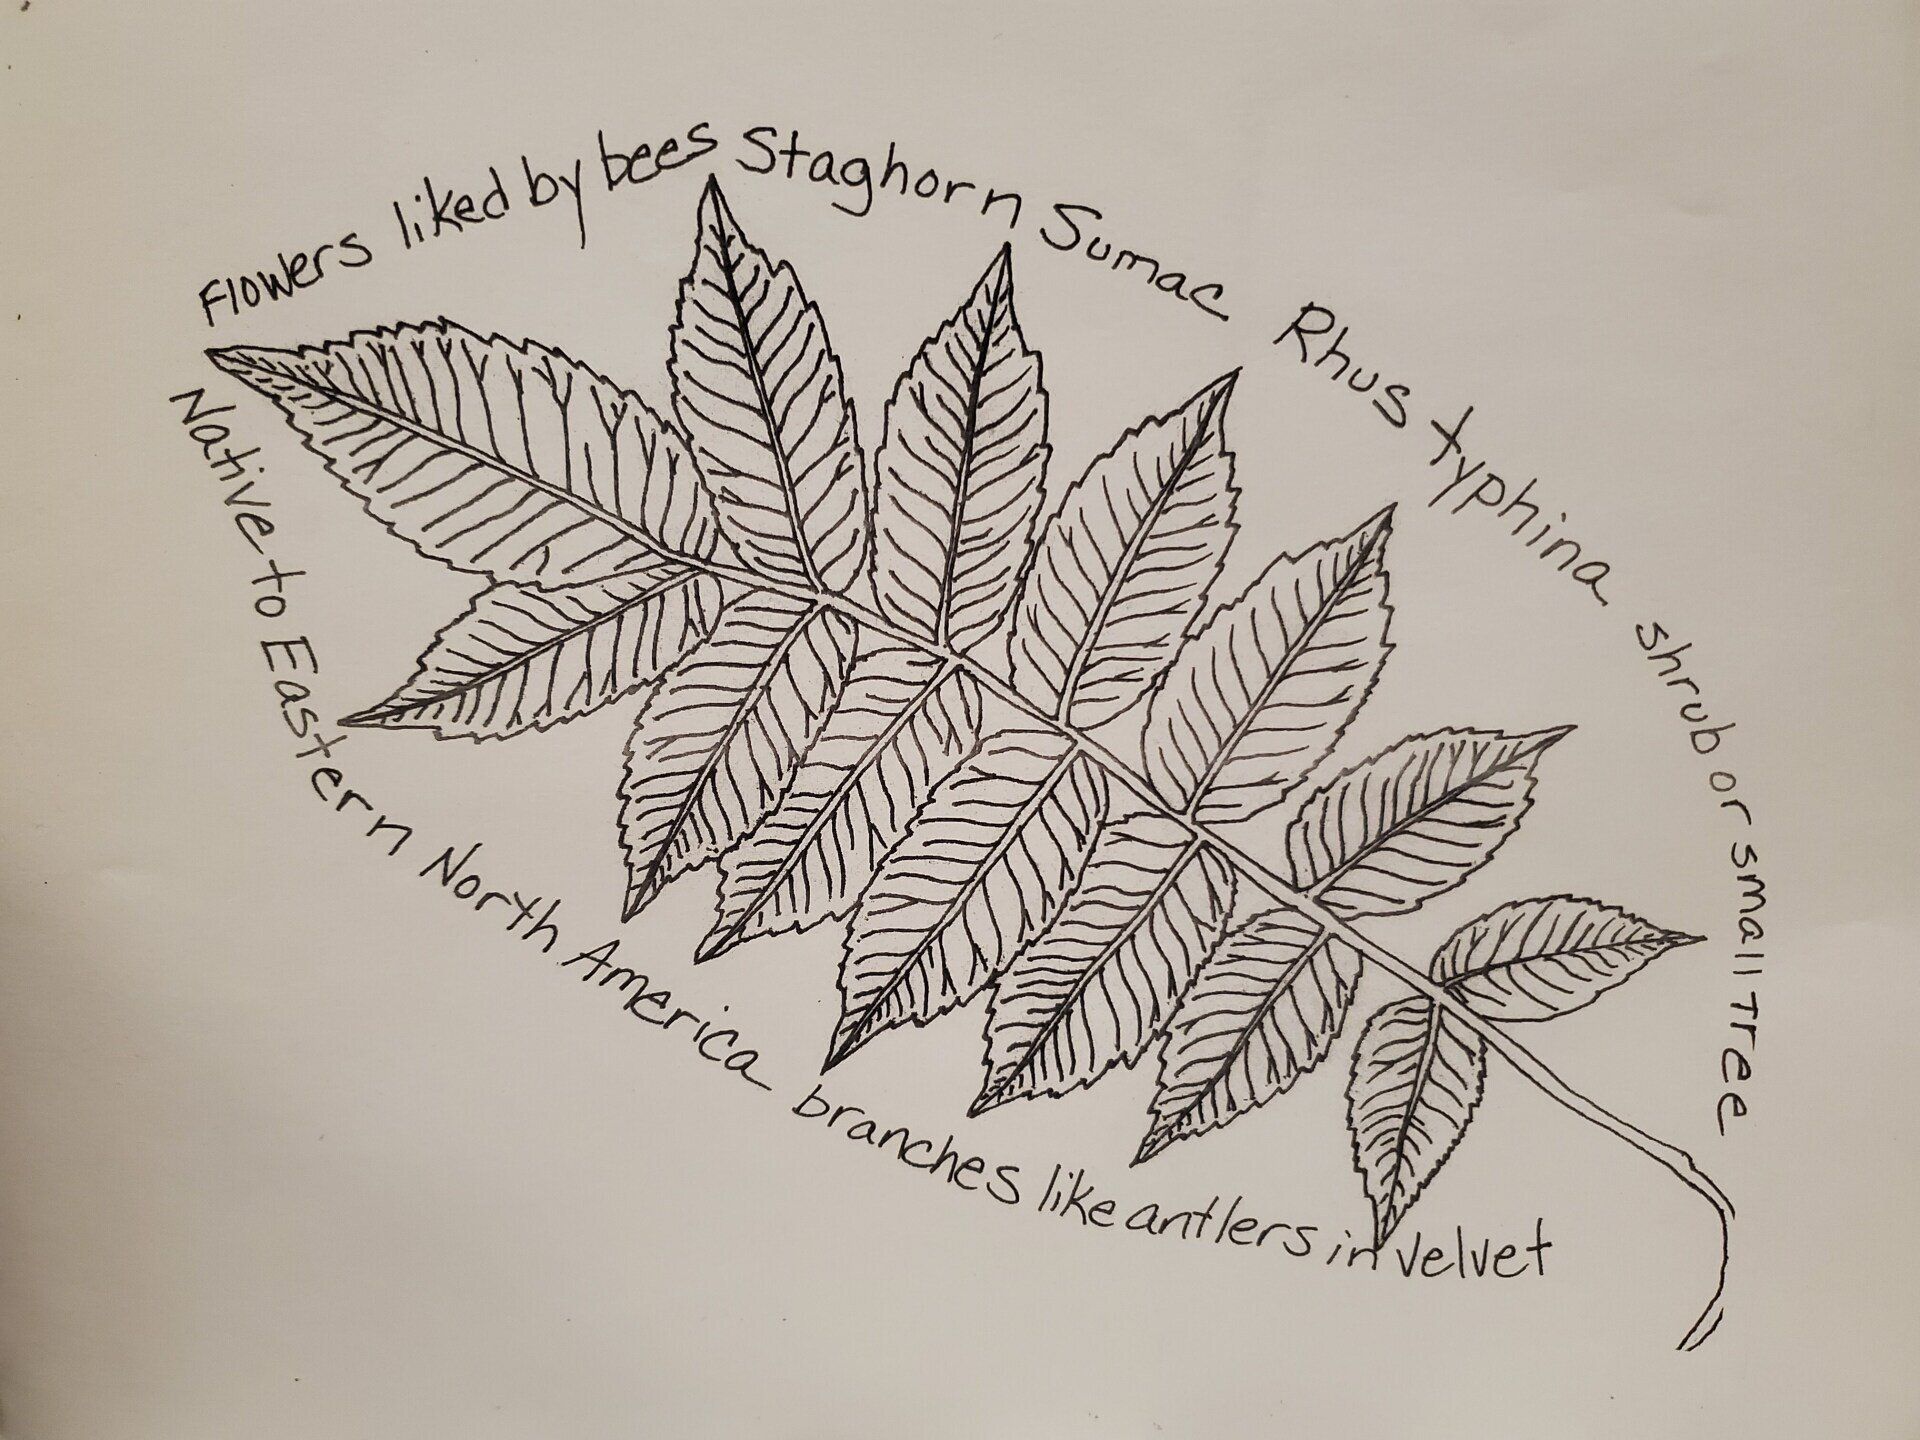 Flowers liked by bees Staghorn Sumac Rhus typhina shrub or small Tree
Native to Eastern North America branches like antlers in velvet